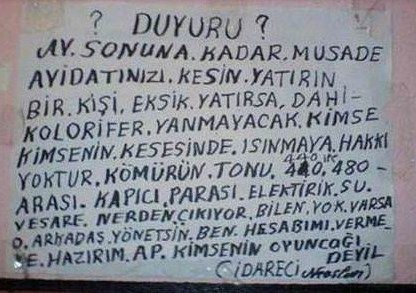 ? DUYURU ?
AY. SONUNA. KADAR. MUSADE
AYIDATINIZI. KESİN. YATIRIN
BİR. KİŞİ. EKSİK. YATIRSA. DAHİ-
KOLORİFER. YANMAYACAK. KİMSE
KİMSENİN. KESESİNDE. ISINMAYA. HAKKI
YOKTUR. KÖMÜRÜN. TONU. 440 ile 480-
ARASI. KAPICI. PARASI. ELEKTİRİK. SU.
VESARE. NERDEN ÇIKIYOR. BİLEN. YOK. VARSA
O. ARKADAŞ. YÖNETSİN. BEN. HESABIMI. VERME-
E. HAZIRIM. AP. KİMSENİN OYUNCAĞI
DEYİL
(İDARECİ